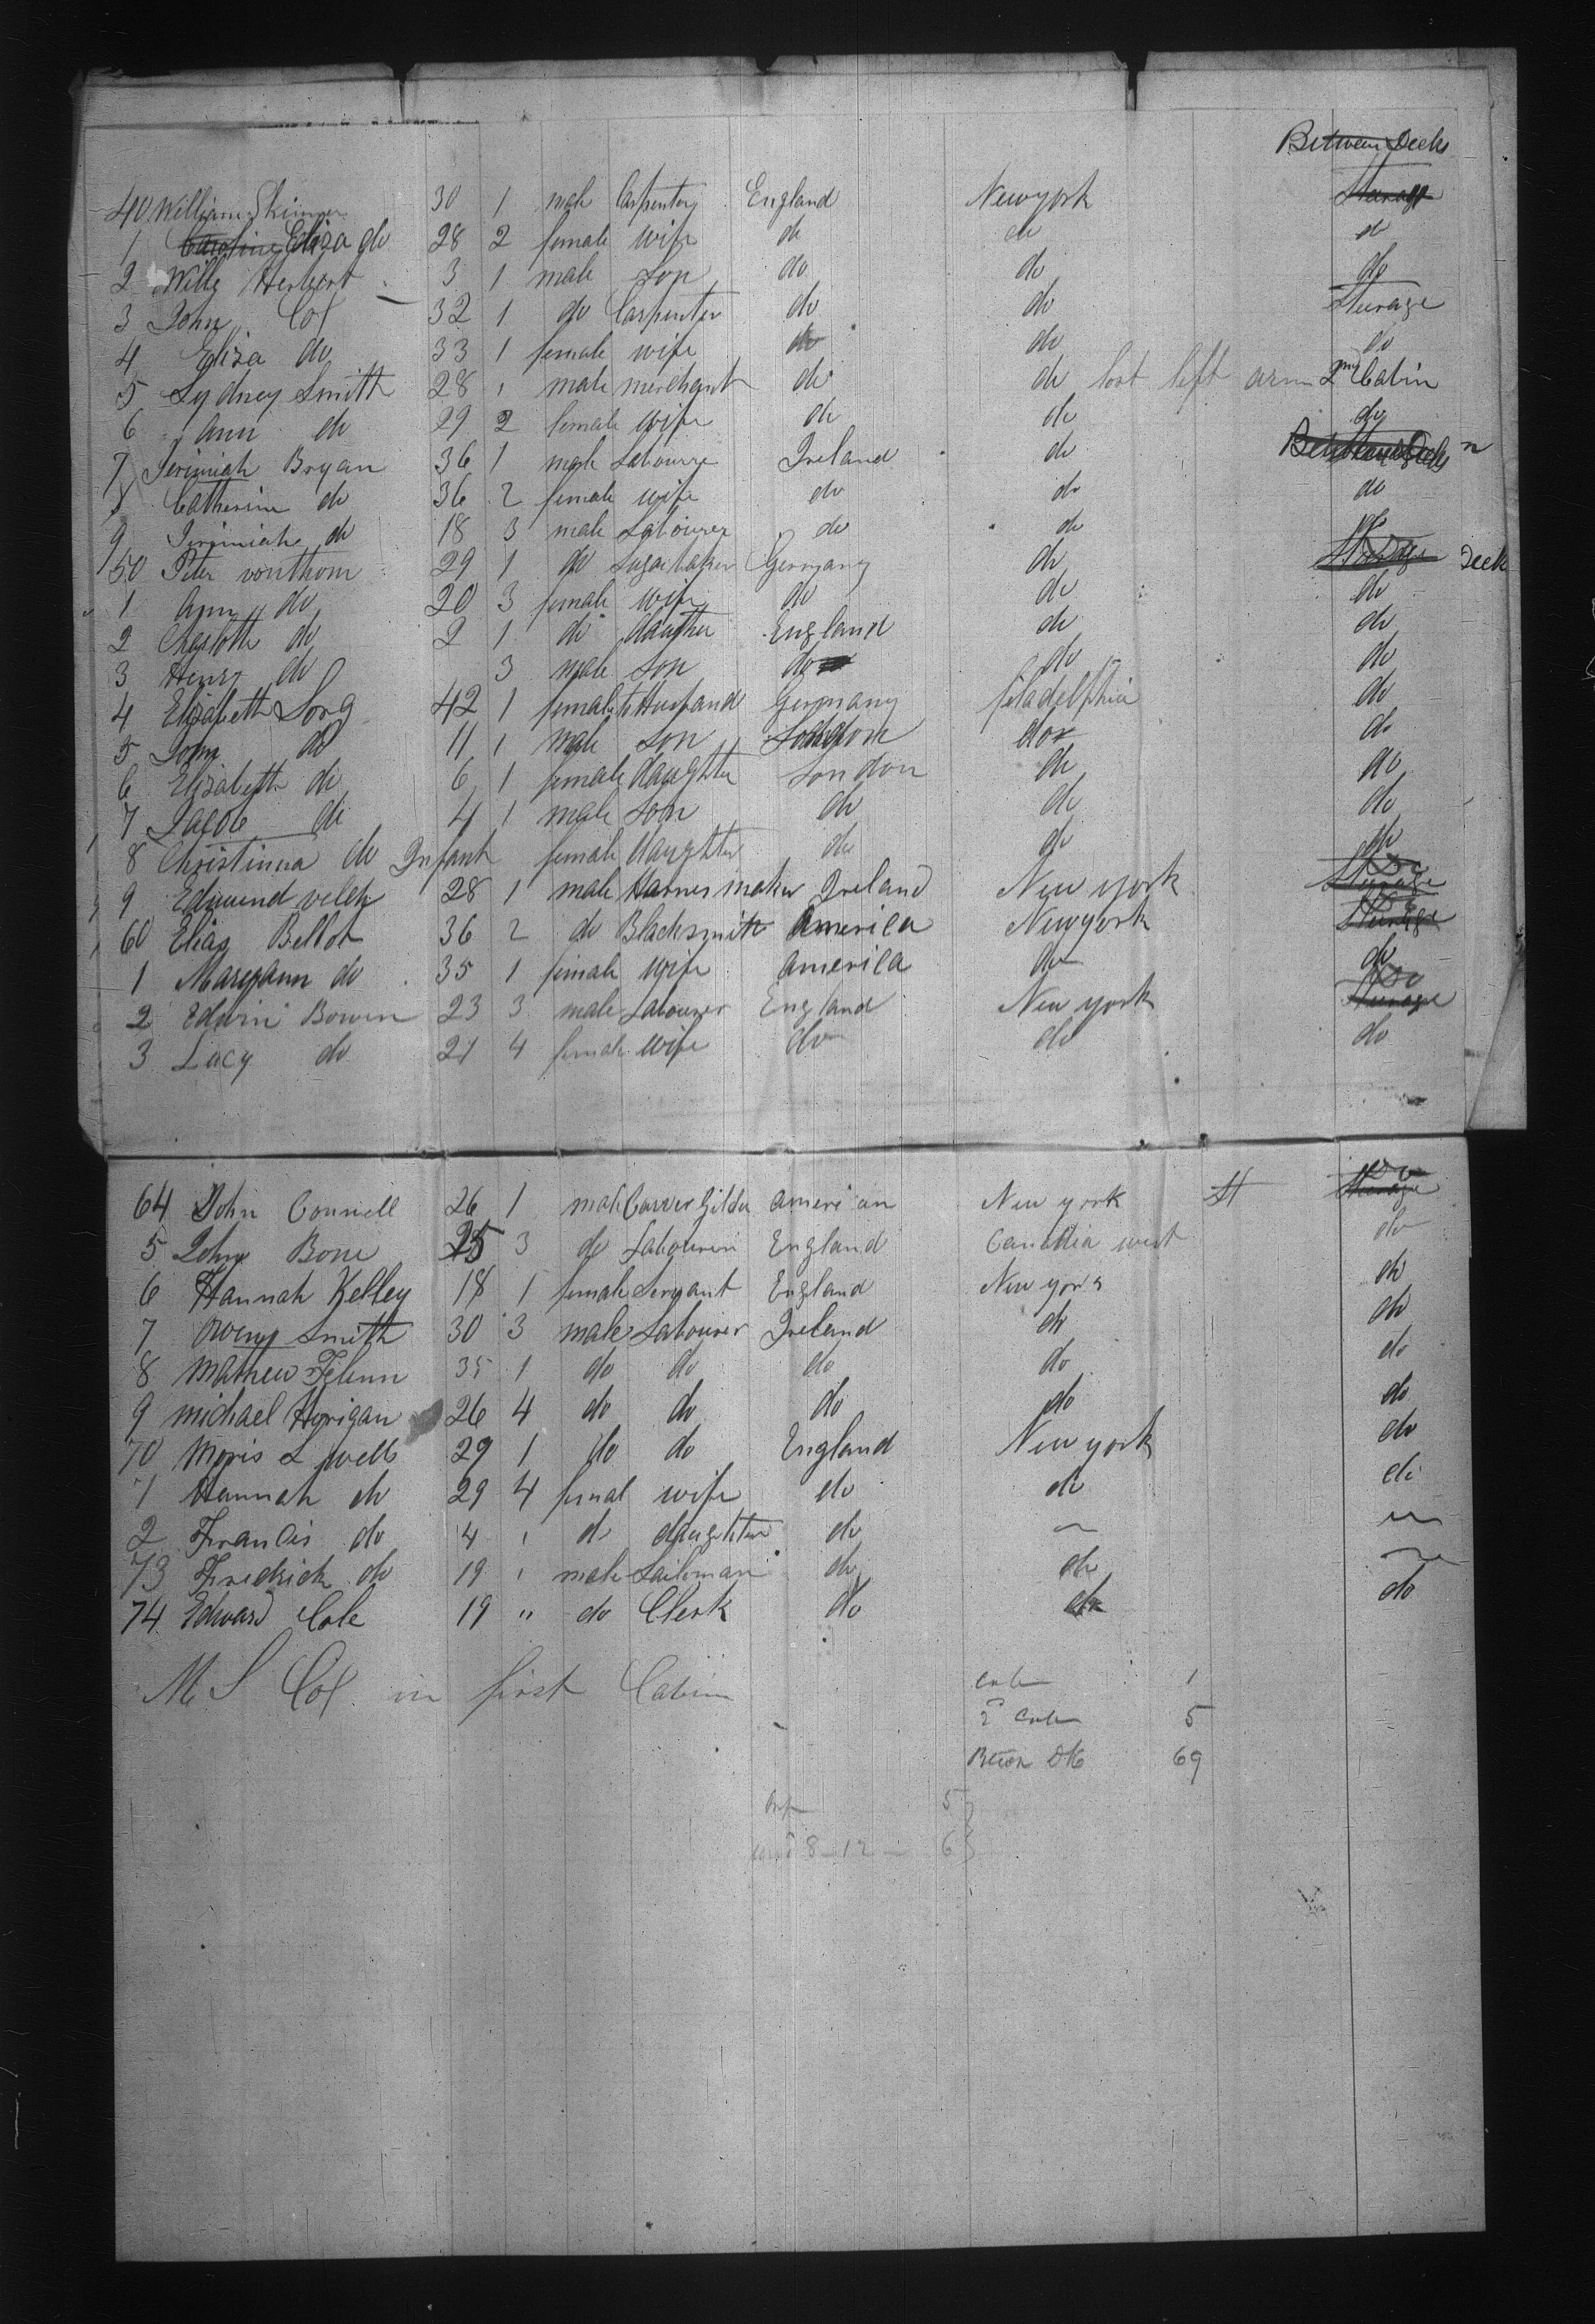 Between Decks
40 William Skinner 30 1 male Carpenter England Newyork Sturage
1 Caroline Eliza do 28 2 female wife do do do
2 Wille Herbert 3 1 male Son do do do
3 John Cox 32 1 do Carpenter do do Sturage
4 Eliza do 33 1 female wife do do do
5 Sydney Smith 28 " male merchant do do lost left arm 2nd Cabin
6 Ann do 29 2 female wife do do do
7 Jerimiah Bryan 36 1 male Labourer Ireland do Between Decks
8 Catherine do 36 2 female wife do do do
9 Jerimiah do 18 3 male Labourer do do
50 Peter vonthom 29 1 do Sugarbaker Germany do Deck
1 Ann do 20 3 female wife do do do
2 Charlotte do 2 1 do daughter England do do
3 Henry do 3 male son do do do
4 Elizabeth Long 42 1 female to Husband Germany filadelfhia do
5 John do 11 1 male son London do do
6 Elizabeth do 6 1 female daughter London do do
7 Jacob do 4 1 male Son do do do
8 Christinna do Infant female daughter do do do
9 Edmund velch 28 1 male Harnes maker Ireland New york Do Sturage
60 Elias Bellot 36 2 do Blacksmith America Newyork Sturage
1 Maryann do 35 1 female wife america do do
2 Edwin Bowen 23 3 male Labourer England New york Do Sturage
3 Lucy do 21 4 female wife do do do
64 John Connell 26 1 male Carver Gilder american New york St Do Sturage
5 John Bone 25 3 do Labourer England Canadia west do
6 Hannah Kelley 18 1 female Servant England New york do
7 Oweny Smith 30 3 male Labourer Ireland do do
8 Mathew Felunn 35 1 do do do do do
9 michael Horigan 26 4 do do do do do
70 Moris L wells 29 1 do do England New york do
7 Hannah do 29 4 femal wife do do do
2 Francis do 4 " do daughter do
73 Fredrick do 19 " male do do
74 Edward Cole 19 " do Clerk do do do
M S Cox in first Cabin
Cabn 1
2d Cabn 5
Betwn Dks 69
Inf 5
8-12 - 6